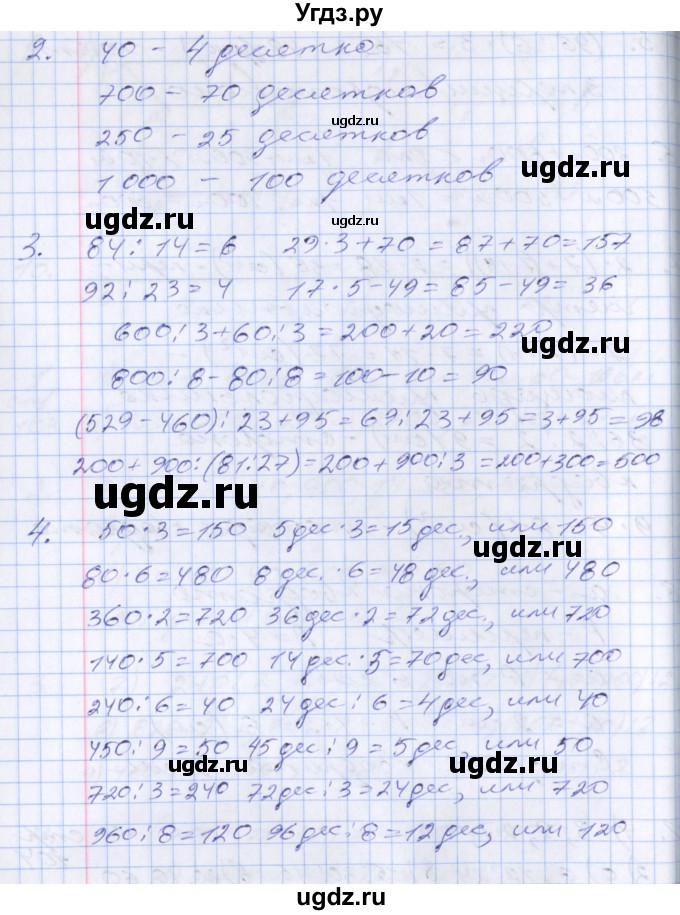 Угдз.ру
2. 40 - 4 десятка
700 - 70 десятков
ugdz.ru
250 - 25 десятков
ugdz.ru
1 000 - 100 десятков
ugdz.ru ugdz.ru
3. 84 : 14 = 6 29 · 3 + 70 = 87 + 70 = 157
92 : 23 = 4 17 · 5 - 49 = 85 - 49 = 36
600 : 3 + 60 : 3 = 200 + 20 = 220
ugdz.ru
800 : 8 - 80 : 8 = 100 - 10 = 90
(529 - 460) : 23 + 95 = 69 : 23 + 95 = 3 + 95 = 98
200 + 900 : (81 : 27) = 200 + 900 : 3 = 200 + 300 = 500
ugdz.ru
4. 50 · 3 = 150 5 дес · 3 = 15 дес., или 150
ugdz.ru
80 · 6 = 480 8 дес. · 6 = 48 дес., или 480
360 · 2 = 720 36 дес · 2 = 72 дес., или 720
140 · 5 = 700 14 дес. · 5 = 70 дес, или 700
240 : 6 = 40 24 дес : 6 = 4 дес, или 40
450 : 9 = 50 45 дес : 9 = 5 дес, или 50
ugdz.ru ugdz.ru
720 : 3 = 240 72 дес : 3 = 24 дес, или 720
960 : 8 = 120 96 дес : 8 = 12 дес, или 120
ugdz.ru